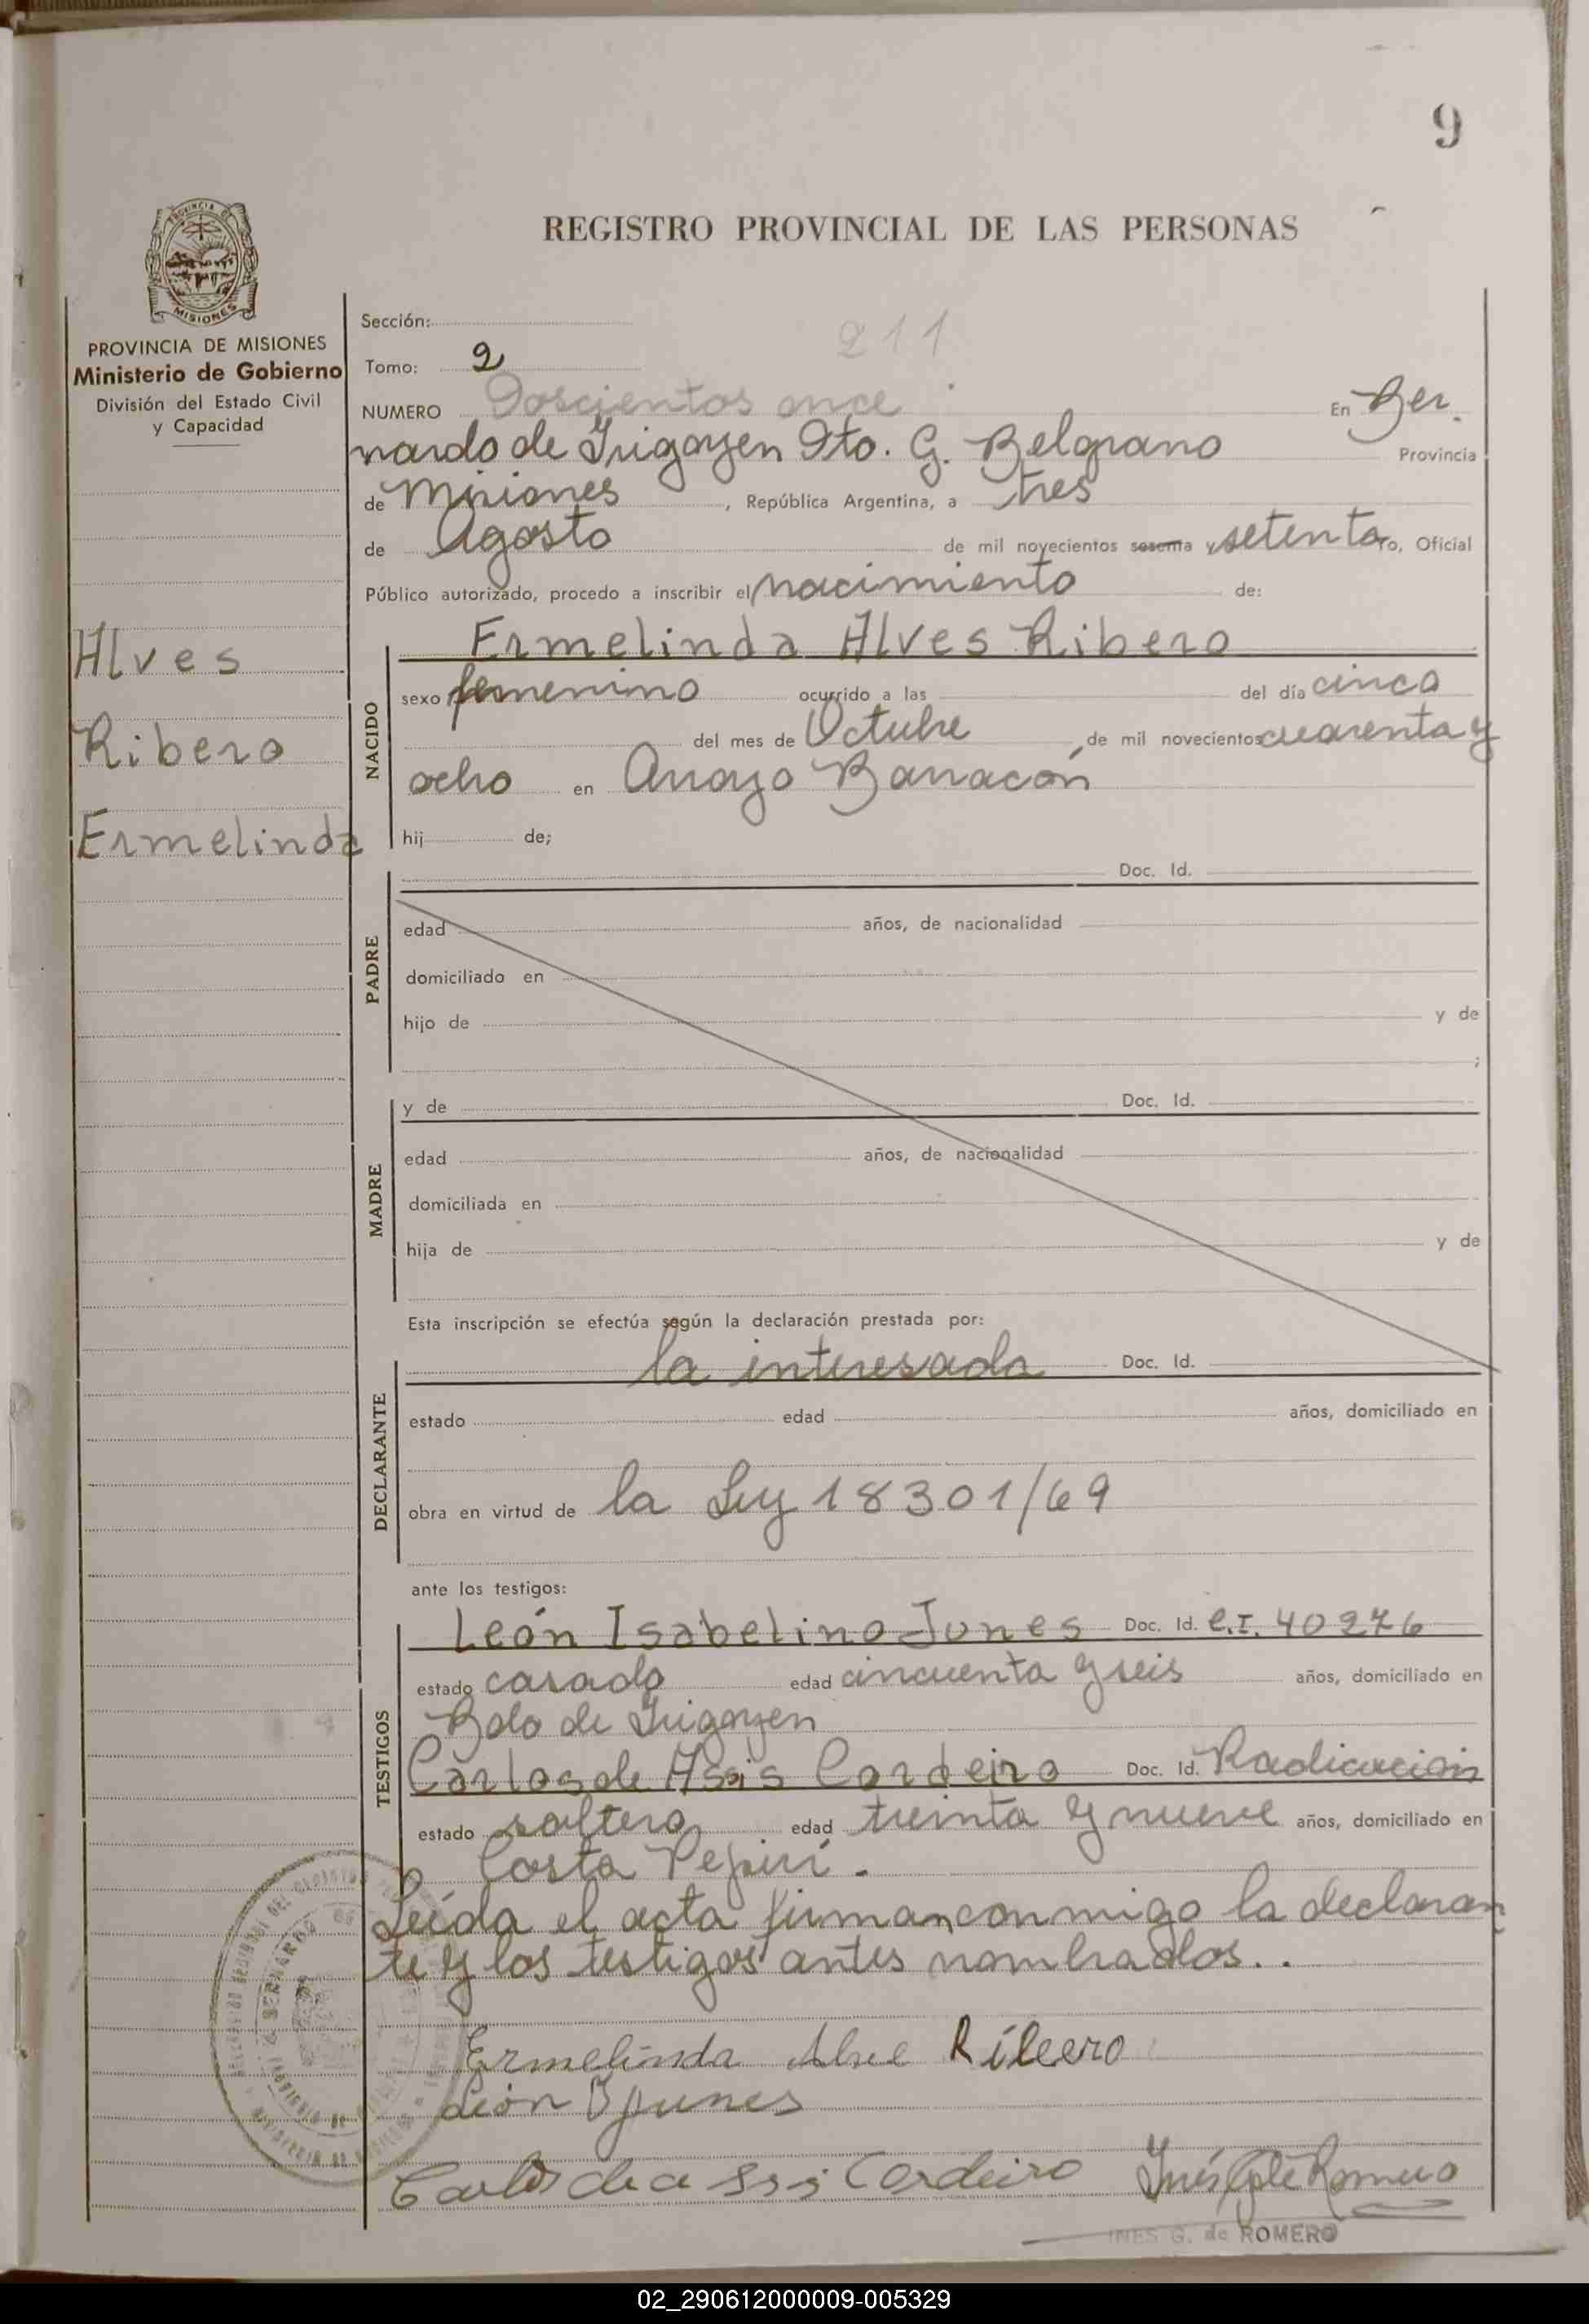 9
REGISTRO PROVINCIAL DE LAS PERSONAS
PROVINCIA DE
MISIONES
PROVINCIA DE MISIONES
Ministerio de Gobierno
División del Estado Civil
y Capacidad
Alves
Ribero
Ermelinda
Sección:
211
Tomo: 2
NUMERO Doscientos once En Ber.
nardo de Irigoyen Dto. G. Belgrano Provincia
de Misiones, República Argentina, a tres
de Agosto de mil novecientos sesenta y setenta ro, Oficial
Público autorizado, procedo a inscribir el nacimiento de:
NACIDO
Ermelinda Alves Ribero
sexo femenino ocurrido a las del día cinco
del mes de Octubre, de mil novecientos cuarenta y
ocho en Arroyo Barracón
hij de;
PADRE
Doc. Id.
edad años, de nacionalidad
domiciliado en
hijo de y de
;
MADRE
y de Doc. Id.
edad años, de nacionalidad
domiciliada en
hija de y de
Esta inscripción se efectúa según la declaración prestada por:
DECLARANTE
la interesada Doc. Id.
estado edad años, domiciliado en
obra en virtud de la Ley 18301/69
ante los testigos:
TESTIGOS
León Isabelino Junes Doc. Id. C.I. 40276
estado casado edad cincuenta y seis años, domiciliado en
Bdo de Irigoyen
Carlos de Assis Cordeiro Doc. Id. Radicación
estado soltero edad treinta y nueve años, domiciliado en
Costa Pepirí.
Leída el acta firman conmigo la declaran
te y los testigos antes nombrados..
Ermelinda Alve Ribero
León I Junes
Carlos de assis Cordeiro Inés G de Romero
INES G. de ROMERO
02_290612000009-005329